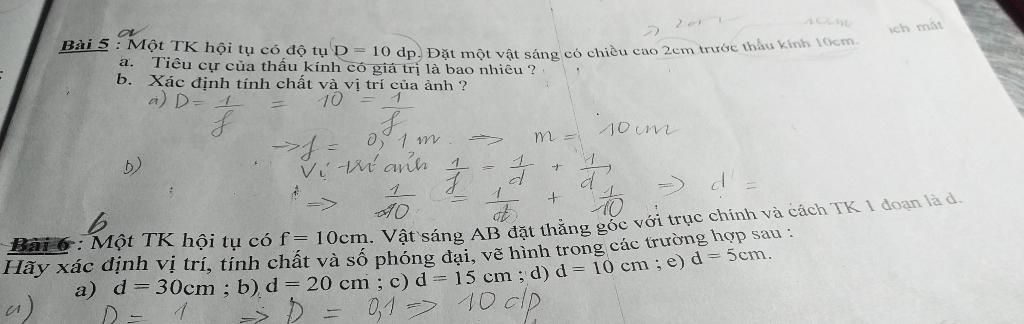 2cm 10cm ích mắt
a
Bài 5 : Một TK hội tụ có độ tụ D = 10 dp. Đặt một vật sáng có chiều cao 2cm trước thấu kính 10cm.
a. Tiêu cự của thấu kính có giá trị là bao nhiêu ?
b. Xác định tính chất và vị trí của ảnh ?
a) D = 1/f = 10 = 1/f
→ f = 0,1 m => m = 10 cm
b) Vị trí ảnh 1/f = 1/d + 1/d'
=> 1/10 = 1/d + 1/10 => d' =
b
Bài 6 : Một TK hội tụ có f = 10cm. Vật sáng AB đặt thẳng góc với trục chính và cách TK 1 đoạn là d.
Hãy xác định vị trí, tính chất và số phóng đại, vẽ hình trong các trường hợp sau :
a) d = 30cm ; b) d = 20 cm ; c) d = 15 cm ; d) d = 10 cm ; e) d = 5cm.
a) D = 1 => D = 0,1 => 10 dp